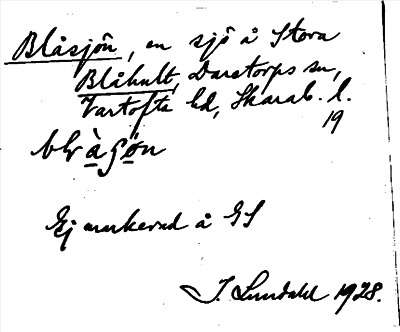 Blåsjön, en sjö å Stora
Blåhult, Daretorps sn,
Vartofta hd, Skarab. l.
19
blɤàʂön
Ej markerad å GS
J. Lundahl 1928.